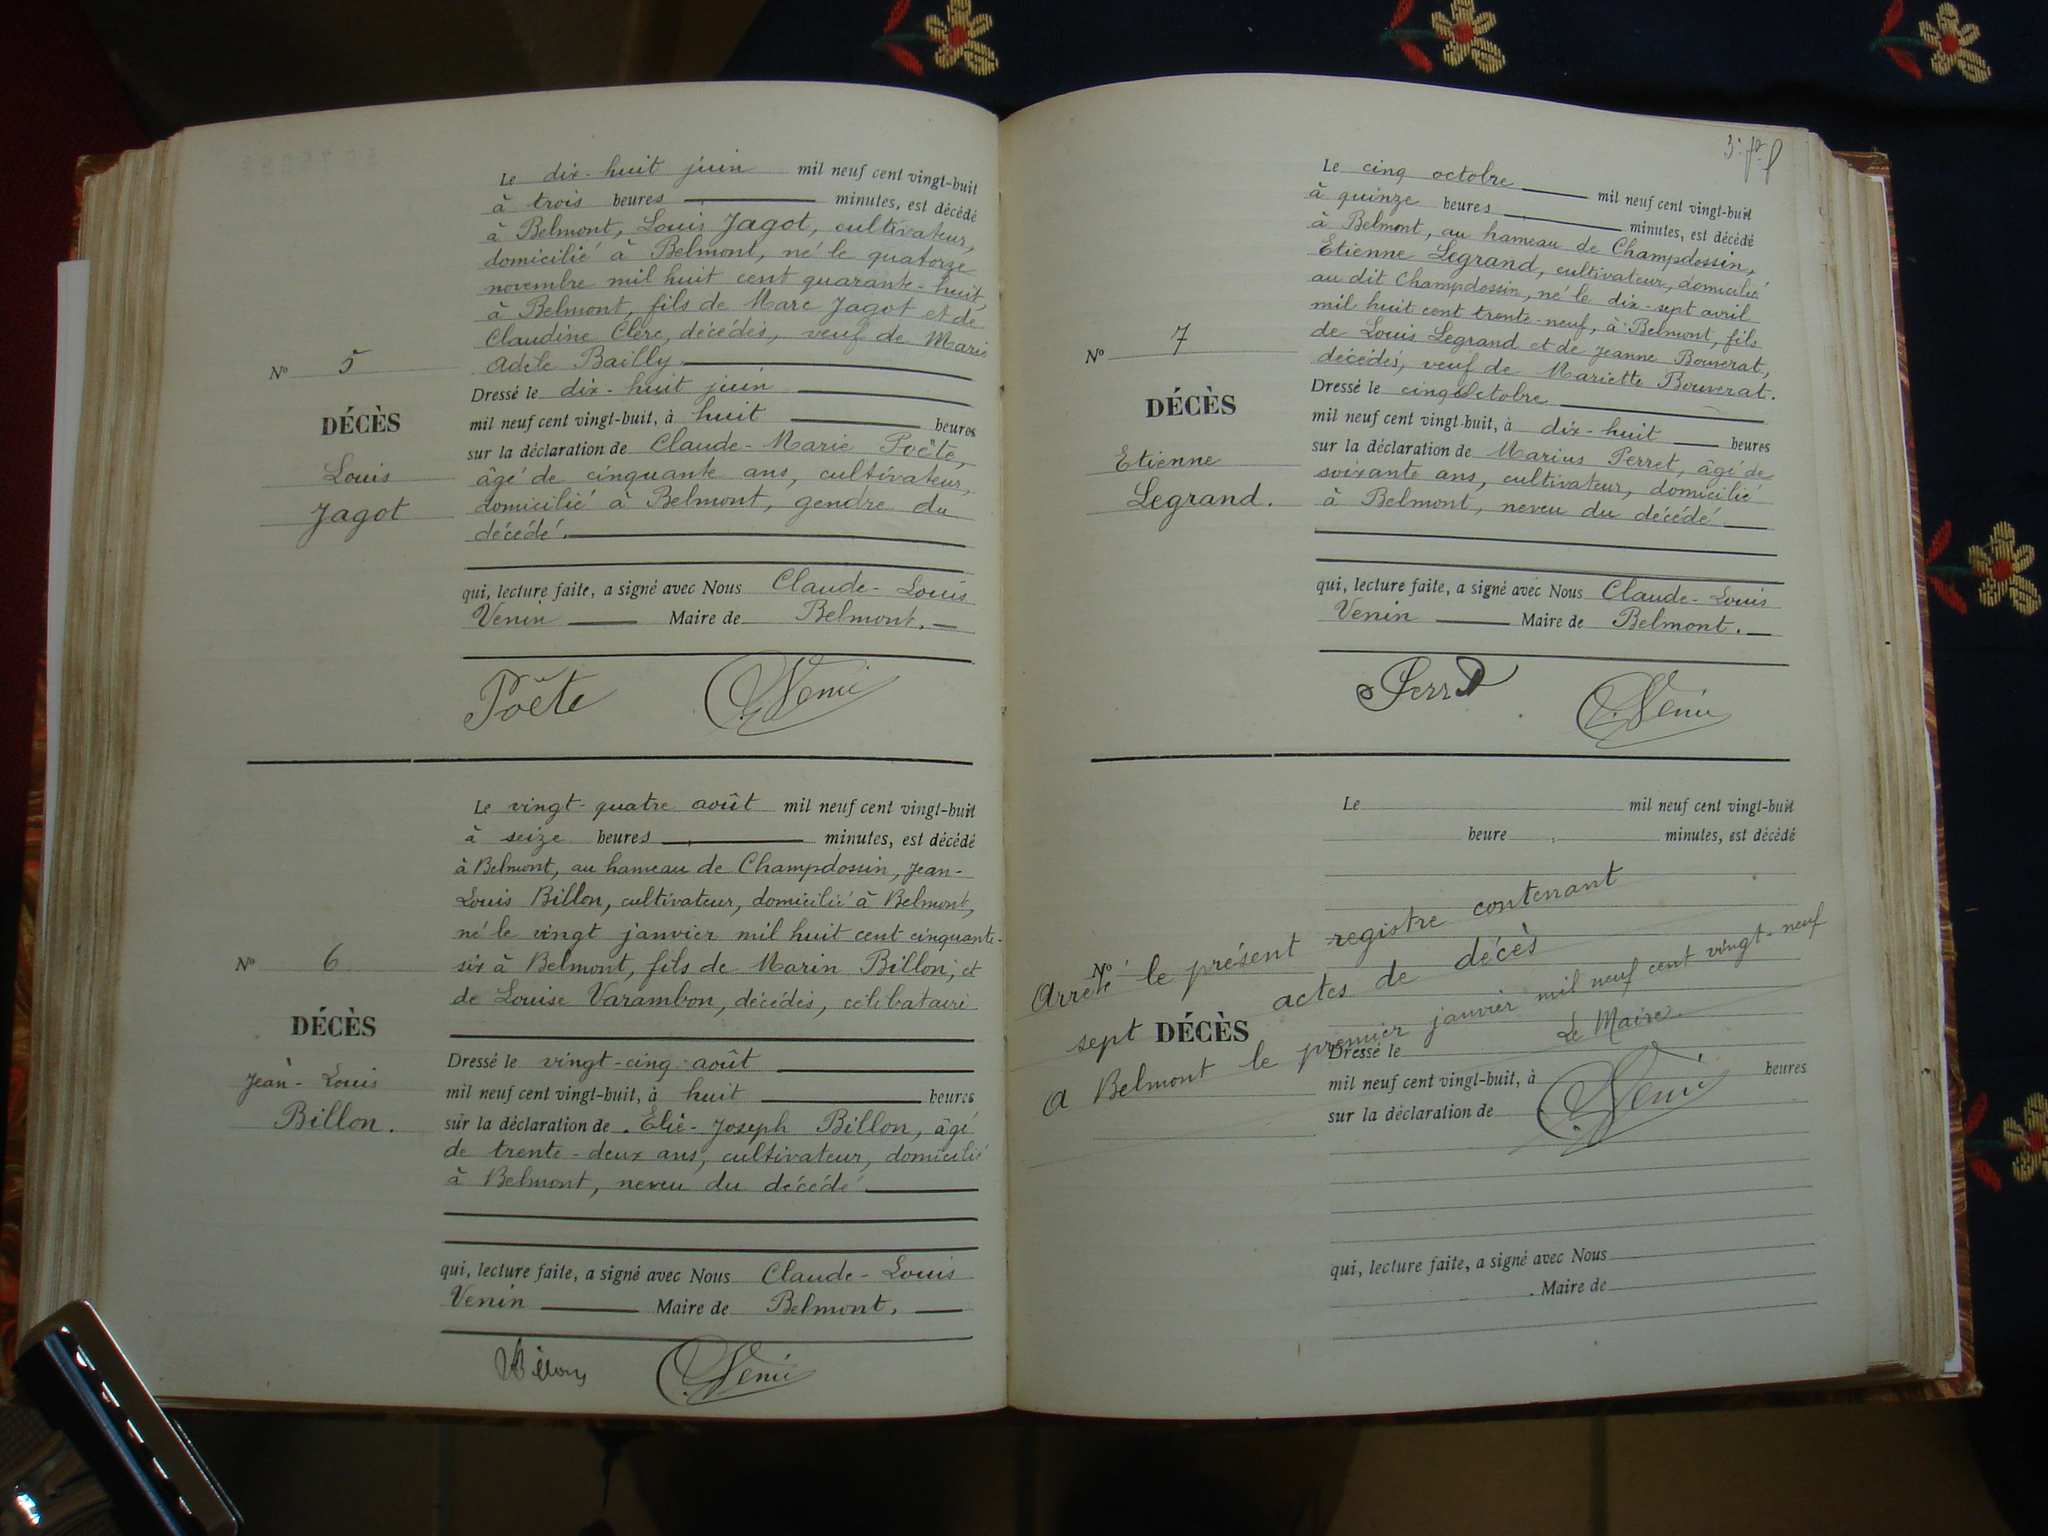 Le dix-huit juin mil neuf cent vingt-huit
à trois heures minutes, est décédé
à Belmont, Louis Jagot, cultivateur,
domicilié à Belmont, né le quatorze
novembre mil huit cent quarante-huit,
à Belmont, fils de Marc Jagot et de
Claudine Clerc, décédés, veuf de Marie
Adèle Bailly
Nº 5
Dressé le dix-huit juin
DÉCÈS
mil neuf cent vingt-huit, à huit heures
sur la déclaration de Claude-Marie Poëte,
Louis
âgé de cinquante ans, cultivateur,
Jagot
domicilié à Belmont, gendre du
décédé.
qui, lecture faite, a signé avec Nous Claude-Louis
Venin Maire de Belmont.
Poëte CVenin
Le vingt-quatre août mil neuf cent vingt-huit
à seize heures minutes, est décédé
à Belmont, au hameau de Champdossin, Jean-
Louis Billon, cultivateur, domicilié à Belmont,
né le vingt janvier mil huit cent cinquante-
Nº 6
six à Belmont, fils de Marin Billon, et
de Louise Varambon, décédés, célibataire
DÉCÈS
Dressé le vingt-cinq août
Jean-Louis
mil neuf cent vingt-huit, à huit heures
Billon.
sur la déclaration de Elie-Joseph Billon, âgé
de trente-deux ans, cultivateur, domicilié
à Belmont, neveu du décédé
qui, lecture faite, a signé avec Nous Claude-Louis
Venin Maire de Belmont.
Billon CVenin
Le cinq octobre mil neuf cent vingt-huit
à quinze heures minutes, est décédé
à Belmont, au hameau de Champdossin,
Etienne Legrand, cultivateur, domicilié
au dit Champdossin, né le dix-sept avril
mil huit cent trente-neuf, à Belmont, fils
Nº 7
de Louis Legrand et de Jeanne Bouverat,
décédés, veuf de Mariette Bouverat.
DÉCÈS
Dressé le cinq octobre
mil neuf cent vingt-huit, à dix-huit heures
Etienne
sur la déclaration de Marius Perret, âgé de
soixante ans, cultivateur, domicilié
Legrand.
à Belmont, neveu du décédé
qui, lecture faite, a signé avec Nous Claude-Louis
Venin Maire de Belmont.
Perret CVenin
Le mil neuf cent vingt-huit
heure minutes, est décédé
Nº
Arrêté le présent registre contenant
sept actes de décès
DÉCÈS
A Belmont le premier janvier mil neuf cent vingt-neuf
Le Maire
Dressé le
mil neuf cent vingt-huit, à heures
sur la déclaration de
CVenin
qui, lecture faite, a signé avec Nous
Maire de